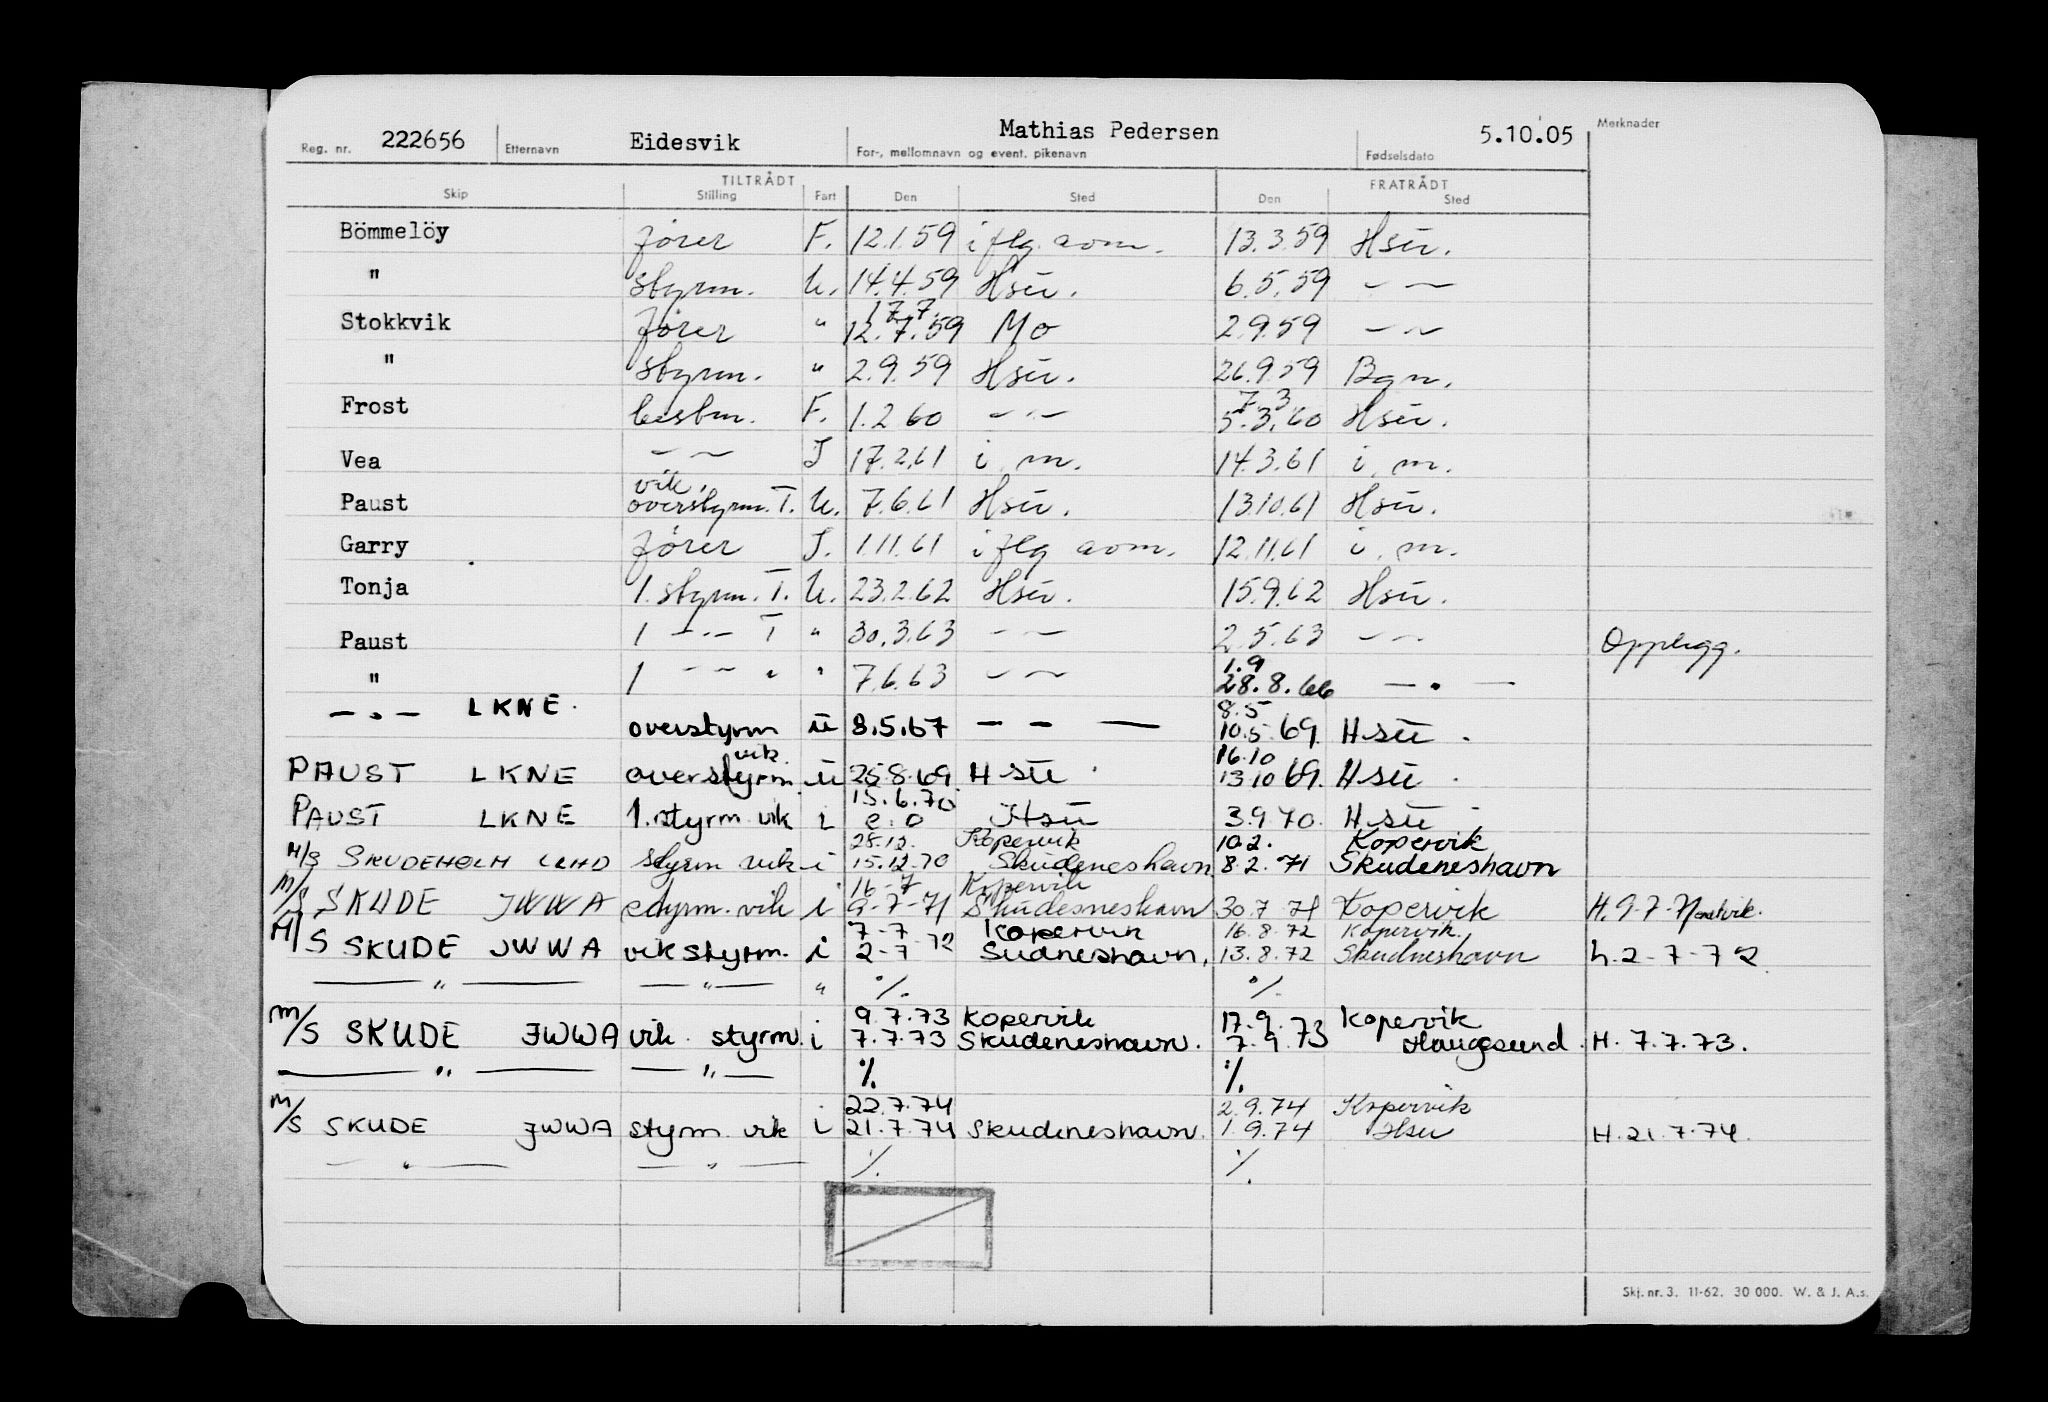 Reg. nr. 222656 Etternavn Eidesvik For-, mellomnavn og event. pikenavn Mathias Pedersen Fødselsdato 5.10.05 Merknader
TILTRÅDT FRATRÅDT
Skip Stilling Fart Den Sted Den Sted
Bömmelöy fører F. 12.1.59 i flg. aom. 13.3.59 Hsu.
" styrm. U. 14.4.59 Hsu. 6.5.59 — 〜
17.7.
Stokkvik fører " 12.7.59 Mo 2.9.59 — 〜
" styrm. " 2.9.59 Hsu. 26.9.59 Bgn.
7 3
Frost bestm. F. 1.2 60 — " — 5.3.60 Hsu.
Vea — 〜 I 17.2.61 i. m. 14.3.61 i. m.
vik.
Paust overstyrm. T. U. 7.6.61 Hsu. 13.10.61 Hsu.
Garry fører I. 1.11.61 i flg aom. 12.11.61 i. m.
Tonja 1. styrm. T. U. 23.2.62 Hsu. 15.9.62 Hsu.
Paust 1 — " — T " 30.3.63 — 〜 2.5.63 — 〜 Opplegg.
1.9
" 1 — — " " 7.6.63 — 〜 28.8.66 — " —
8.5
— " — LKNE. overstyrm u 8.5.67 — — — 10.5 69. Hsu.
vik. 16.10
PAUST LKNE overstyrm. u 25.8.69 Hsu. 13.10 69. Hsu.
15.6.70
PAUST LKNE 1. styrm vik i e.o Hsu 3.9 70. Hsu
28.12. Kopervik 10.2. Kopervik
M/S SKUDEHOLM LEHD styrm vik i 15.12.70 Skudeneshavn 8.2.71 Skudeneshavn
16-7 Kopervik
M/S SKUDE JWWA styrm. vik i 9-7-71 Skudesneshavn 30.7 71 Kopervik H. 9-7-71
7-7 Kopervik 16.8.72 Kopervik.
M/S SKUDE JWWA vik styrm. i 2-7-72 Sudneshavn. 13.8.72 Skudneshavn h. 2-7-72.
— " — — " — " %. %.
9.7.73 Kopervik 17.9.73 Kopervik
M/S SKUDE JWWA vik. styrm. i 7.7.73 Skudeneshavn. 7.9.73 Haugesund. H. 7.7.73.
— " — — " — %. %.
22.7.74 2.9.74 Kopervik
M/S SKUDE JWWA styrm. vik i 21.7.74 Skudeneshavn. 1.9.74 Hsu H. 21.7.74.
— " — — " — %. %.
Skj. nr. 3. 11-62. 30 000. W. & J. A.s.